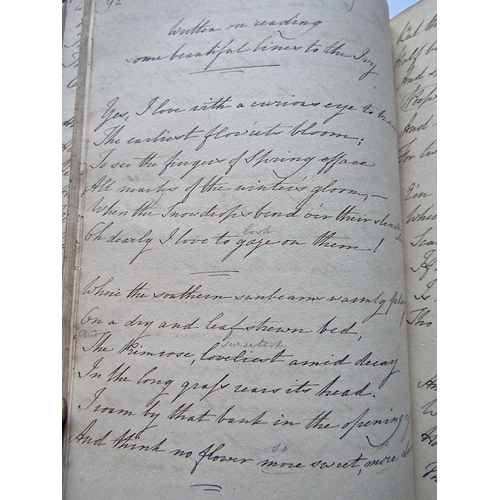 92
Written on reading
some beautiful lines to the Ivy
Yes, I love with a curious eye to
The earliest flow'ets bloom;
To see the fingers of Spring efface
All marks of the winter's gloom,—
When the Snowdrops bend o'er their
look
Oh dearly I love to gaze on them!
Where the southern sunbeams warmly
On a dry and leaf strewn bed,
sweetest
The Primrose, loveliest amid decay
In the long grass rears its head.
I roam by that bank in the opening
so
And think no flower more sweet, more
Half
And
And
For
I'm
Whe
Sca
To
Tho